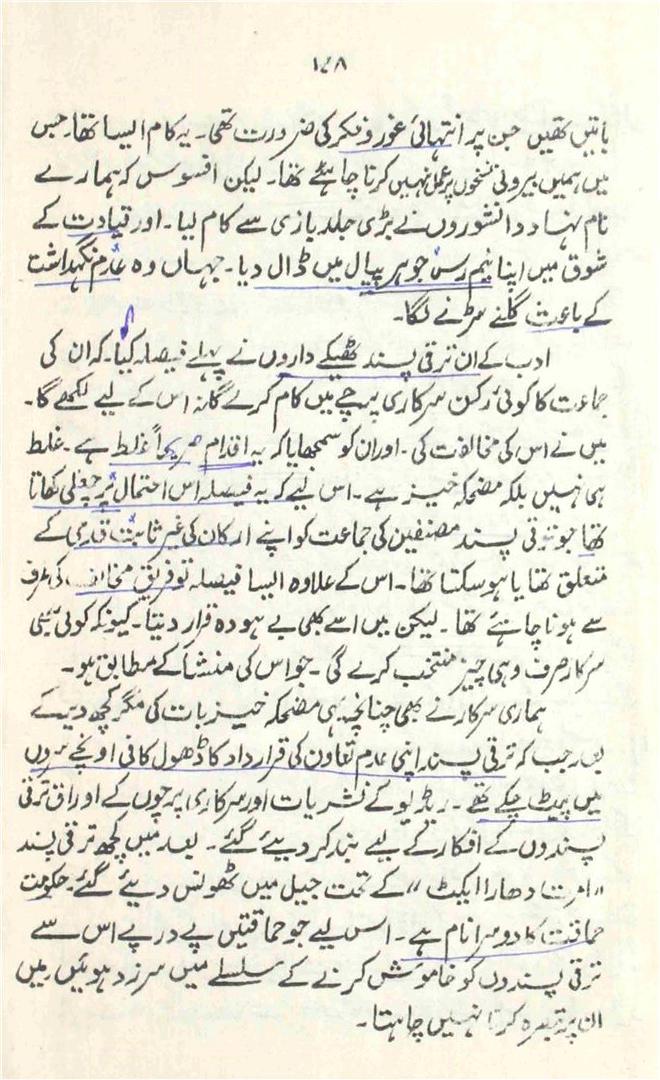 ۱۷۸
باتیں تھیں جن پر انتہائی غور و فکر کی ضرورت تھی۔ یہ کام ایسا تھا۔ جس
میں ہمیں بیرونی نسخوں پر عمل نہیں کرنا چاہئے تھا۔ لیکن افسوس کہ ہمارے
نام نہاد دانشوروں نے بڑی جلد بازی سے کام لیا۔ اور قیادت کے
شوق میں اپنا نیم رس جوہر پیال میں ڈال دیا۔ جہاں وہ عدم نگہداشت
کے باعث گلنے سڑنے لگا۔
ادب کے ان ترقی پسند ٹھیکے داروں نے پہلے فیصلہ کیا۔ کہ ان کی
جماعت کا کوئی رکن سرکاری پرچے میں کام کرے گا نہ اس کے لیے لکھے گا۔
میں نے اس کی مخالفت کی۔ اور ان کو سمجھایا کہ یہ اقدام صریحاً غلط ہے۔ غلط
ہی نہیں بلکہ مضحکہ خیز ہے۔ اس لیے کہ یہ فیصلہ اس احتمال پر چغلی کھاتا
تھا جو ترقی پسند مصنفین کی جماعت کو اپنے ارکان کی غیر ثابت قدمی کے
متعلق تھا یا ہو سکتا تھا۔ اس کے علاوہ ایسا فیصلہ تو فریق مخالف کی طرف
سے ہونا چاہئے تھا۔ لیکن میں اسے بھی بے ہودہ قرار دیتا۔ کیونکہ کوئی بھی
سرکار صرف وہی چیز منتخب کرے گی۔ جو اس کی منشا کے مطابق ہو۔
ہماری سرکار نے بھی چنانچہ یہی مضحکہ خیز بات کی مگر کچھ دیر کے
بعد جب کہ ترقی پسند اپنی عدم تعاون کی قرارداد کا ڈھول کافی اونچے سروں
میں پیٹ چکے تھے۔ ریڈیو کے نشریات اور سرکاری پرچوں کے اوراق ترقی
پسندوں کے افکار کے لیے بند کر دیئے گئے۔ بعد میں کچھ ترقی پسند
”امرت دھارا ایکٹ“ کے تحت جیل میں ٹھونس دیئے گئے۔ حکومت
حماقت کا دوسرا نام ہے۔ اس لیے جو حماقتیں پے در پے اس سے
ترقی پسندوں کو خاموش کرنے کے سلسلے میں سرزد ہوئیں میں
ان پر تبصرہ کرنا نہیں چاہتا۔